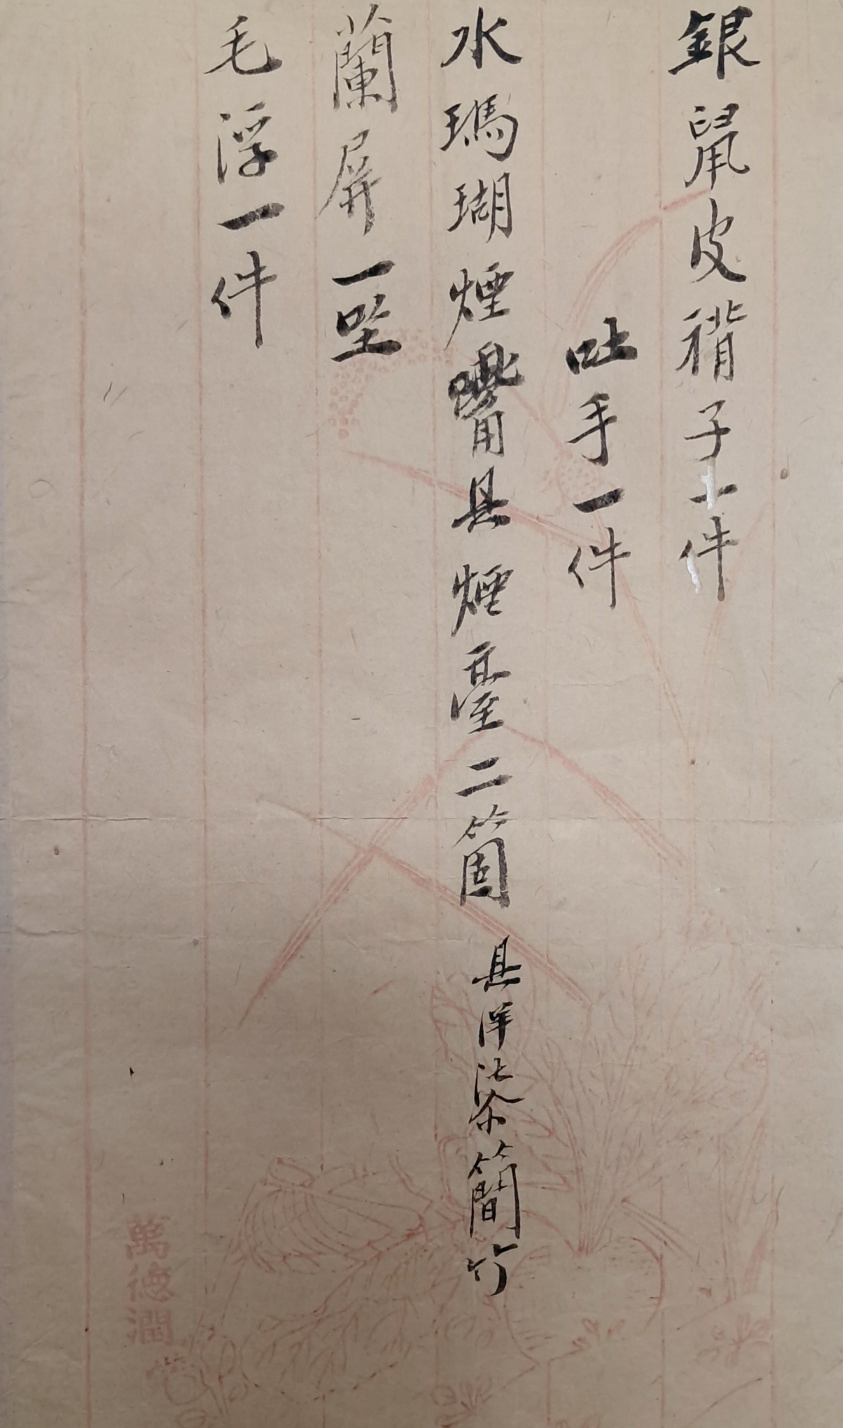 銀鼠皮褙子一件
吐手一件
水瑪瑚煙嘴具煙臺二箇 具洋柒簡竹
蘭屏一坐
毛浮一件
萬德潤